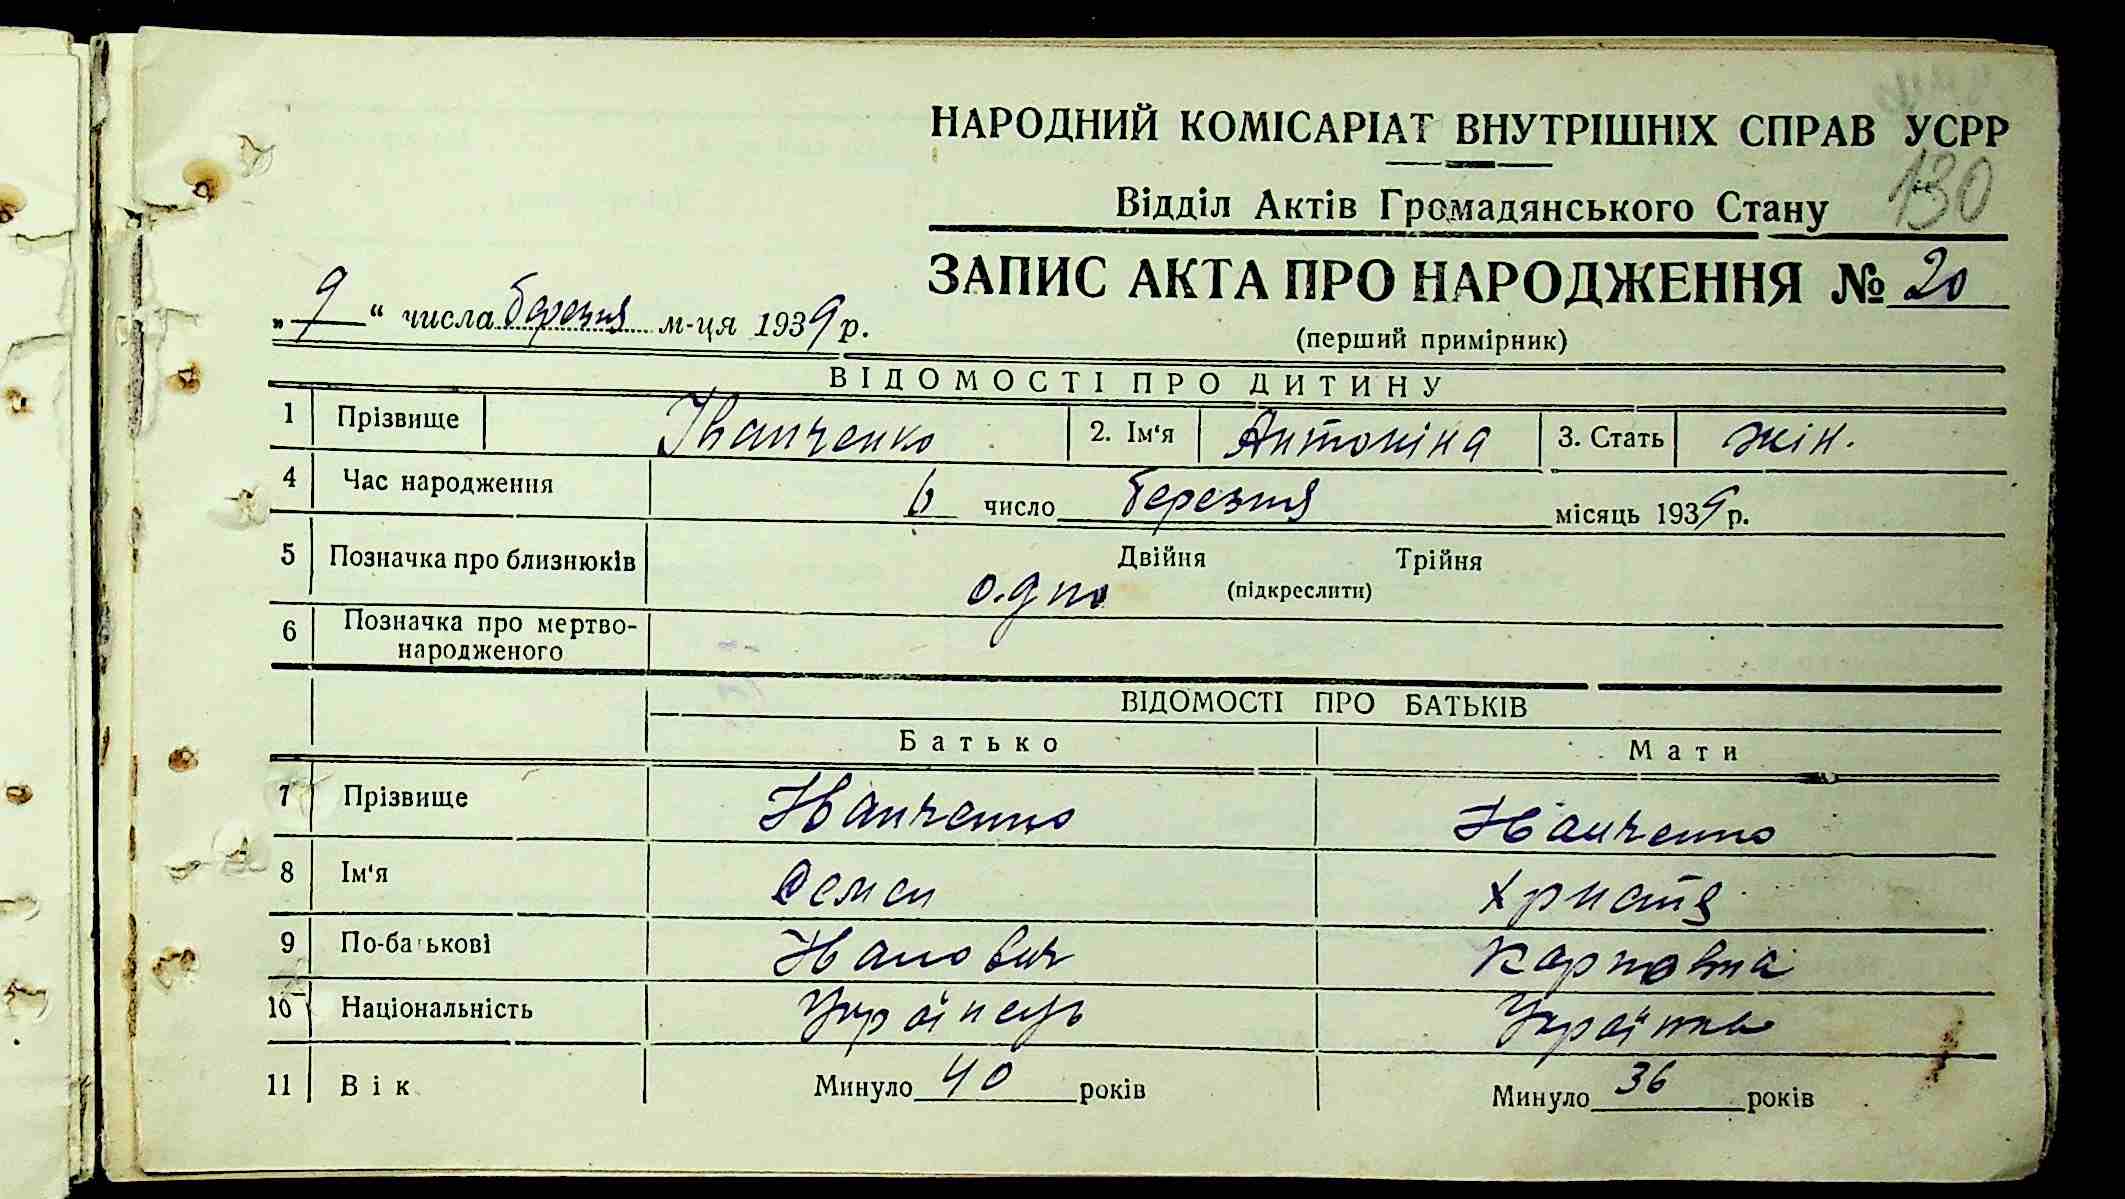 НАРОДНИЙ КОМІСАРІАТ ВНУТРІШНІХ СПРАВ УСРР
130
Відділ Актів Громадянського Стану
ЗАПИС АКТА ПРО НАРОДЖЕННЯ № 20
„9“ числа березня м-ця 1939 р.
(перший примірник)
ВІДОМОСТІ ПРО ДИТИНУ
1 Прізвище Іванченко 2. Ім‘я Антоніна 3. Стать жін.
4 Час народження 6 число березня місяць 1939 р.
5 Позначка про близнюків Двійня Трійня
одно (підкреслити)
6 Позначка про мертво-
народженого
ВІДОМОСТІ ПРО БАТЬКІВ
Батько Мати
7 Прізвище Іванченко Іванченко
8 Ім‘я Семен Христя
9 По-батькові Іванович Карповна
10 Національність Українець Українка
11 Вік Минуло 40 років Минуло 36 років